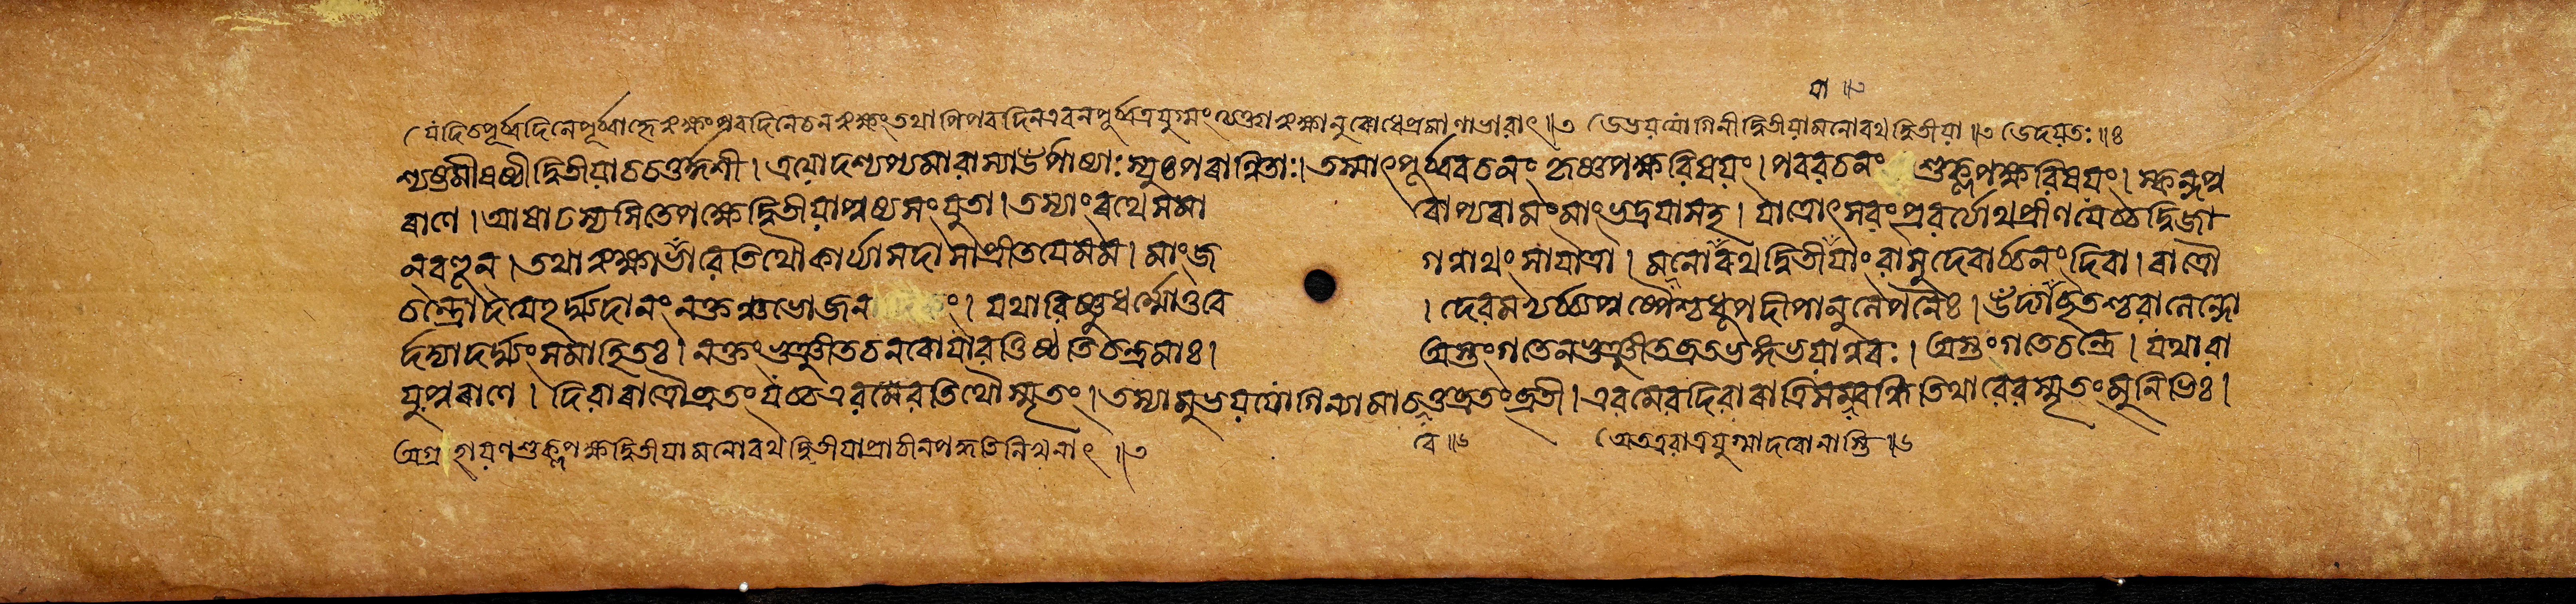 যা ॥৩
(যদি চ পূর্ব্বদিনে পূর্ব্বাহ্নে ঋক্ষং পরদিনে চ ন ঋক্ষং তথাপি পরদিন এব ন পূর্ব্বত্র যুগ্মং ঋক্ষানুরোধে প্রমাণাভাবাৎ ॥৩ উভয়যোগিনী দ্বিতীয়া মনোরথদ্বিতীয়া ॥৩ উদয়তঃ ॥৪
শ্যষ্টমী ষষ্ঠী দ্বিতীয়া চ চতুর্দ্দশী । ত্রয়োদশ্যপ্যমাবাস্যা উপোষ্যাঃ স্যুঃ পরান্বিতাঃ । তস্মাৎ পূর্ব্ববচনং কৃষ্ণপক্ষবিষয়ং । পরবচনং শুক্লপক্ষবিষয়ং । স্কন্দপু
রাণে । আষাঢস্য সিতে পক্ষে দ্বিতীয়া পুষ্যসংযুতা । তস্যাং রথে সমা রোপ্য রামং মাং ভদ্রয়া সহ । যাত্রোৎসবং প্রবর্ত্যাথ প্রীণয়েচ্চ দ্বিজা
ন্ বহূন্ । তথা ঋক্ষাভাবে তিথৌ কার্য্যা সদা সা প্রীতয়ে মম । মাং জ গন্নাথং সা যাত্রা । মনোরথদ্বিতীয়াং বাসুদেবার্চ্চনং দিবা । রাত্রৌ
চন্দ্রোদয়েহর্ঘ্যদানং নক্তঞ্চ ভোজন ং । যথা বিষ্ণুধর্ম্মোত্তরে । দেবমভ্যর্চ্চ্য পুষ্পৈশ্চ ধূপদীপানুলেপনৈঃ । উদ্গচ্ছতশ্চ বালেন্দো
র্দদ্যাদর্ঘ্যং সমাহিতঃ । নক্তং ভুঞ্জীত চ নরো যাবত্তিষ্ঠতি চন্দ্রমাঃ । অস্তং গতে ন ভুঞ্জীত ব্রতভঙ্গভয়ান্নরঃ । অস্তং গতে চন্দ্রে । যথা বা
য়ুপুরাণে । দিবারাত্রৌ ব্রতং যচ্চ এবমেব তিথৌ স্মৃতং । তস্যামুভয়যোগিন্যামাচরেত্তদ্ব্রতং ব্রতী । এবমেব দিবারাত্রিসম্বন্ধি তিথাবেব স্মৃতং মুনিভিঃ ।
অগ্রহায়ণশুক্লপক্ষদ্বিতীয়া মনোরথদ্বিতীয়া প্রাচীনপদ্ধতিলিখনাৎ ॥৩ রে ॥৬ (অতএবাত্র যুগ্মাদরো নাস্তি ॥৬